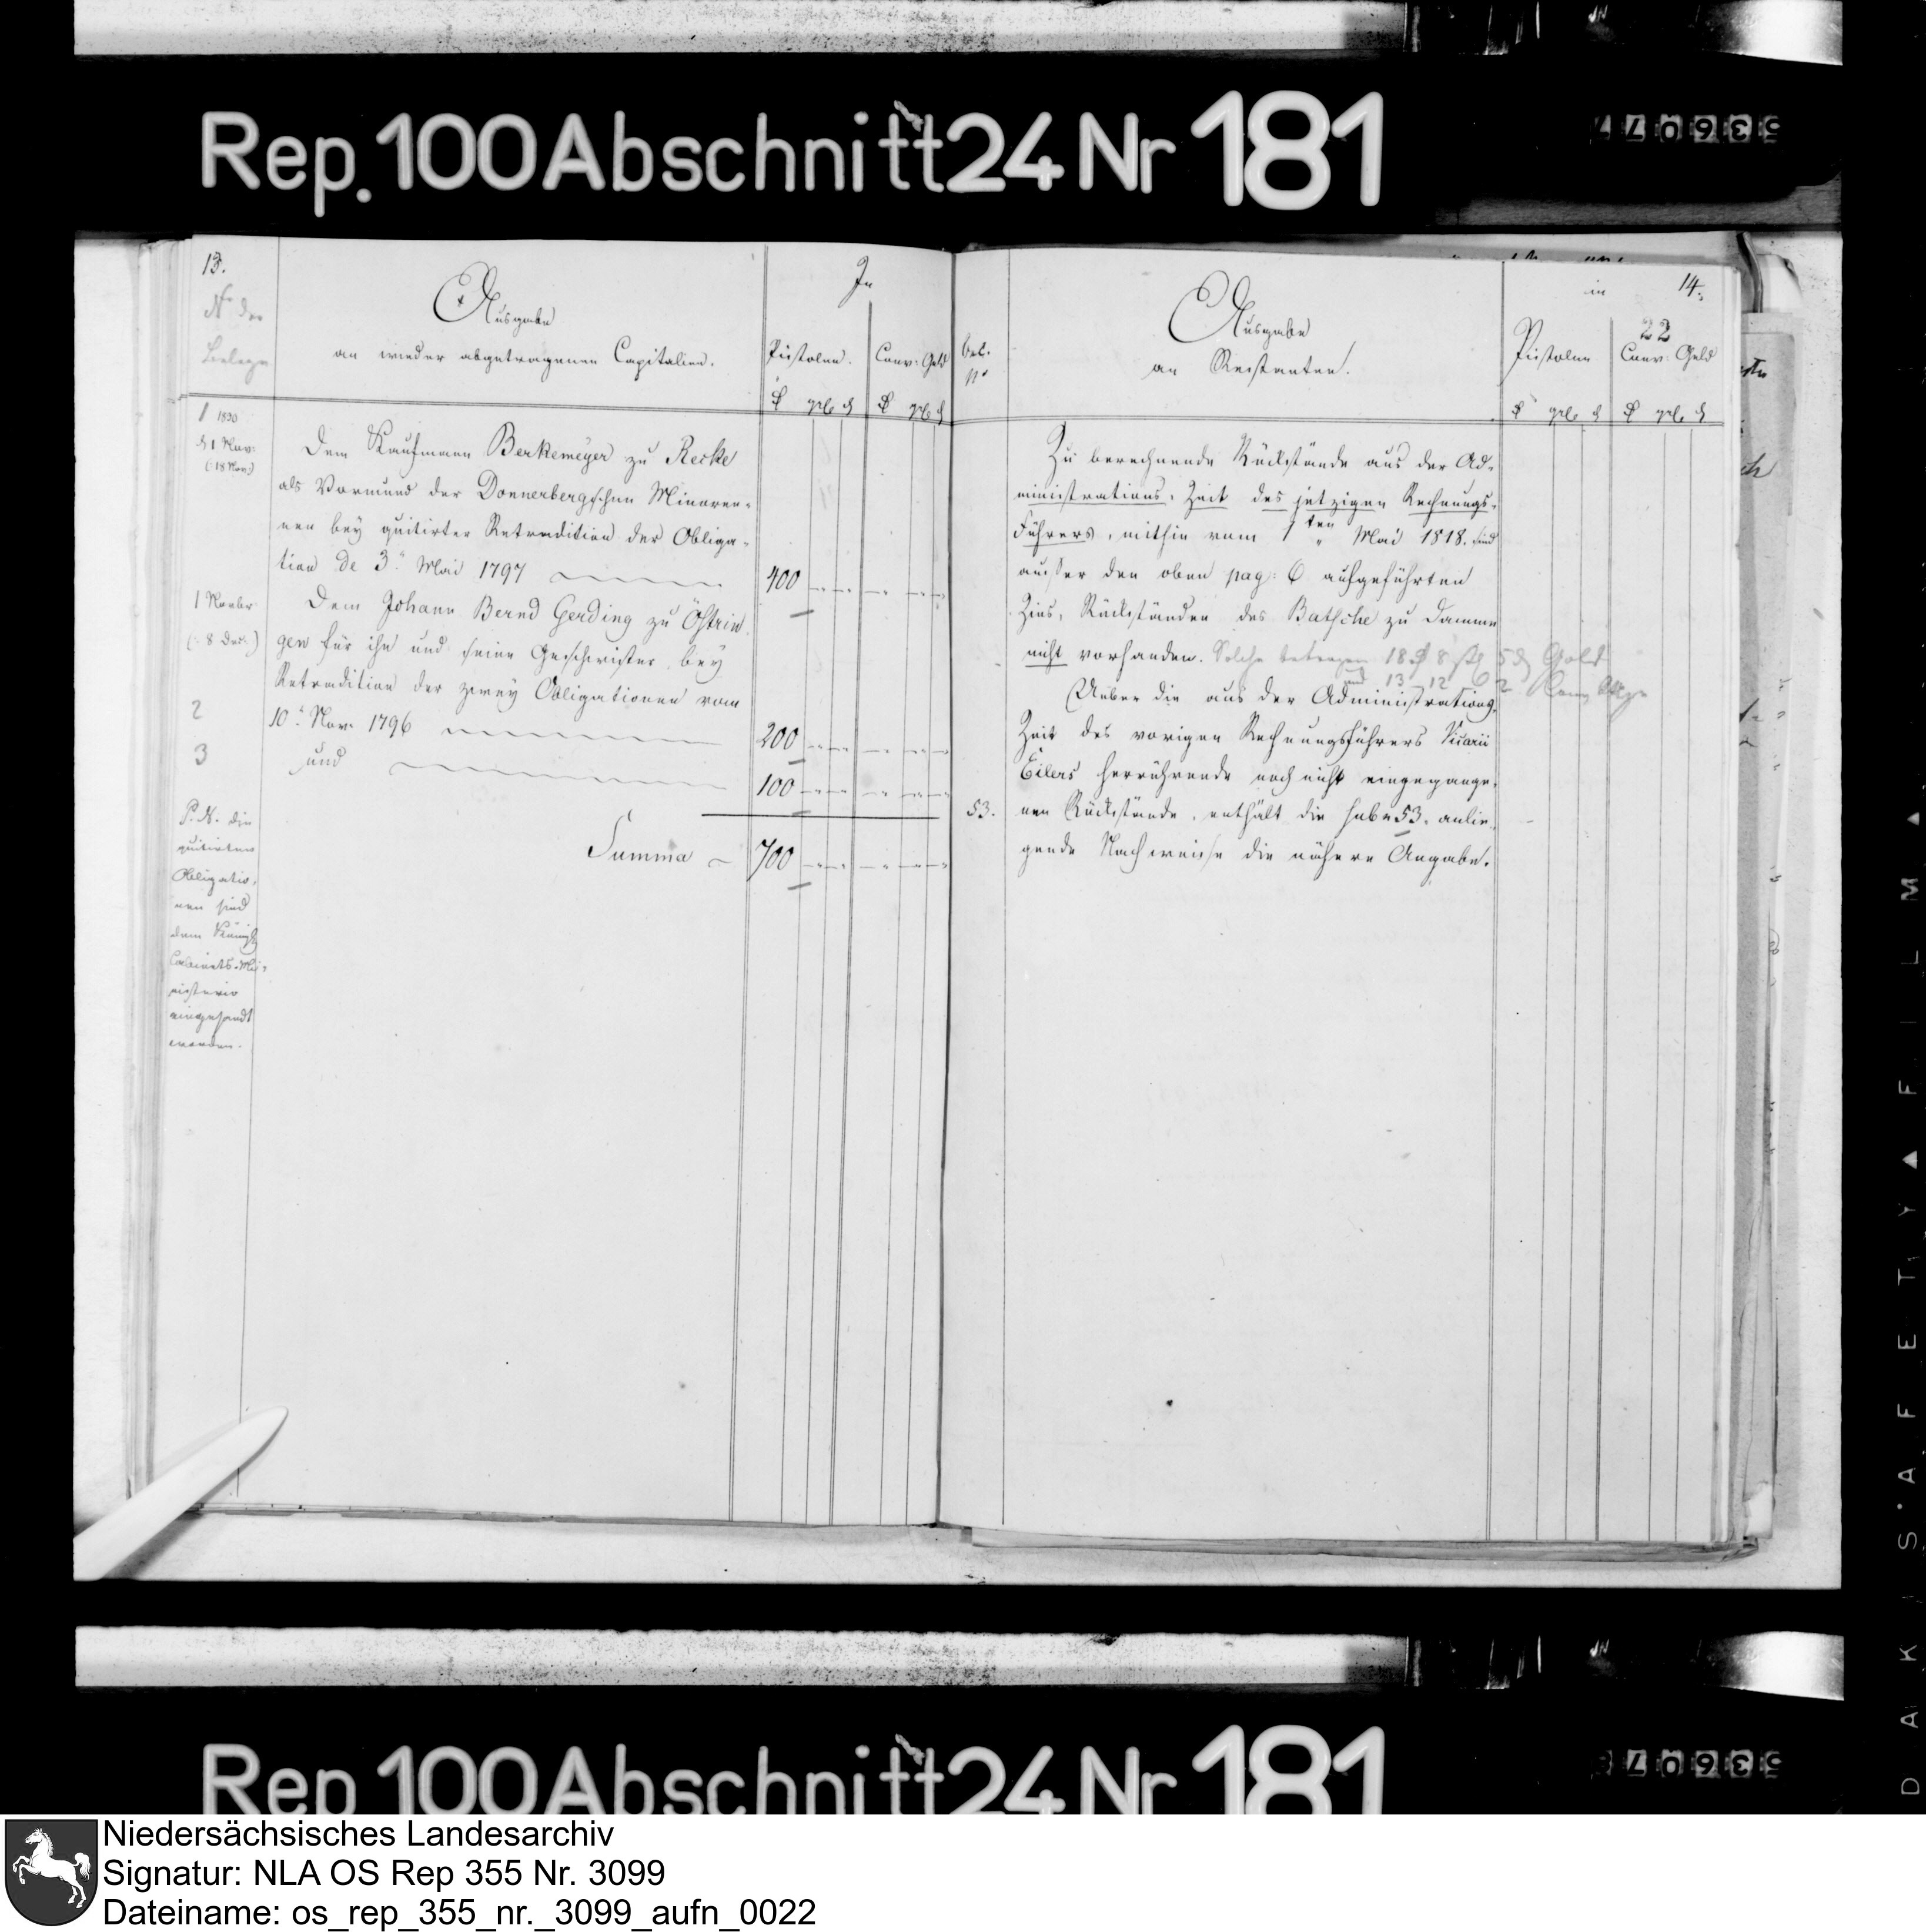 Rep. 100 Abschnitt 24 Nr 181
13.
No der
Belege
Ausgabe
an wieder abgetragenen Capitalien.
In
Pistolen.
Conv: Geld
1 1830
d 1 Nov:
(18 Nov:)
Dem Kaufmann Berkemeyer zu Recke
als Vormund der Donnerbergschen Minoren-
nen bey quitirter Retradition der Obliga-
tion de 3t Mai 1797
400
1 Novbr
(8 Dec:)
Dem Johann Bernd Gerding zu Östrin
gen für ihn und seine Geschwister, bey
Retradition der zwey Obligationen vom
2
10t Nov. 1796
200
3
und
100
Summa
700
P. N. die
quitirten
Obligatio-
nen sind
dem Königl
Cabinets-Mi-
nisterio
eingesandt
worden.
14.
22
Bel.
No
Ausgabe
an Restanten.
in
Pistolen
Conv: Geld
Zu berechnende Rückstände aus der Ad-
ministrations-Zeit des jetzigen Rechnungs-
Führers, mithin vom 1ten Mai 1818. sind
ausser den oben pag: 6 aufgeführten
Zins-Rückständen des Batsche zu Damme
nicht vorhanden. Solche betragen 18 8 5 Gold
und 13 12 6
Ueber die aus der Administrations-
Zeit des vorigen Rechnungsführers Vicarii
Eilers herrührende noch nicht eingegange-
53.
nen Rückstände, enthält die sub n 53. anlie-
gende Nachweise die nähere Angabe.
SAFETY FILM
Rep 100 Abschnitt 24 Nr 181
Niedersächsisches Landesarchiv
Signatur: NLA OS Rep 355 Nr. 3099
Dateiname: os_rep_355_nr._3099_aufn_0022